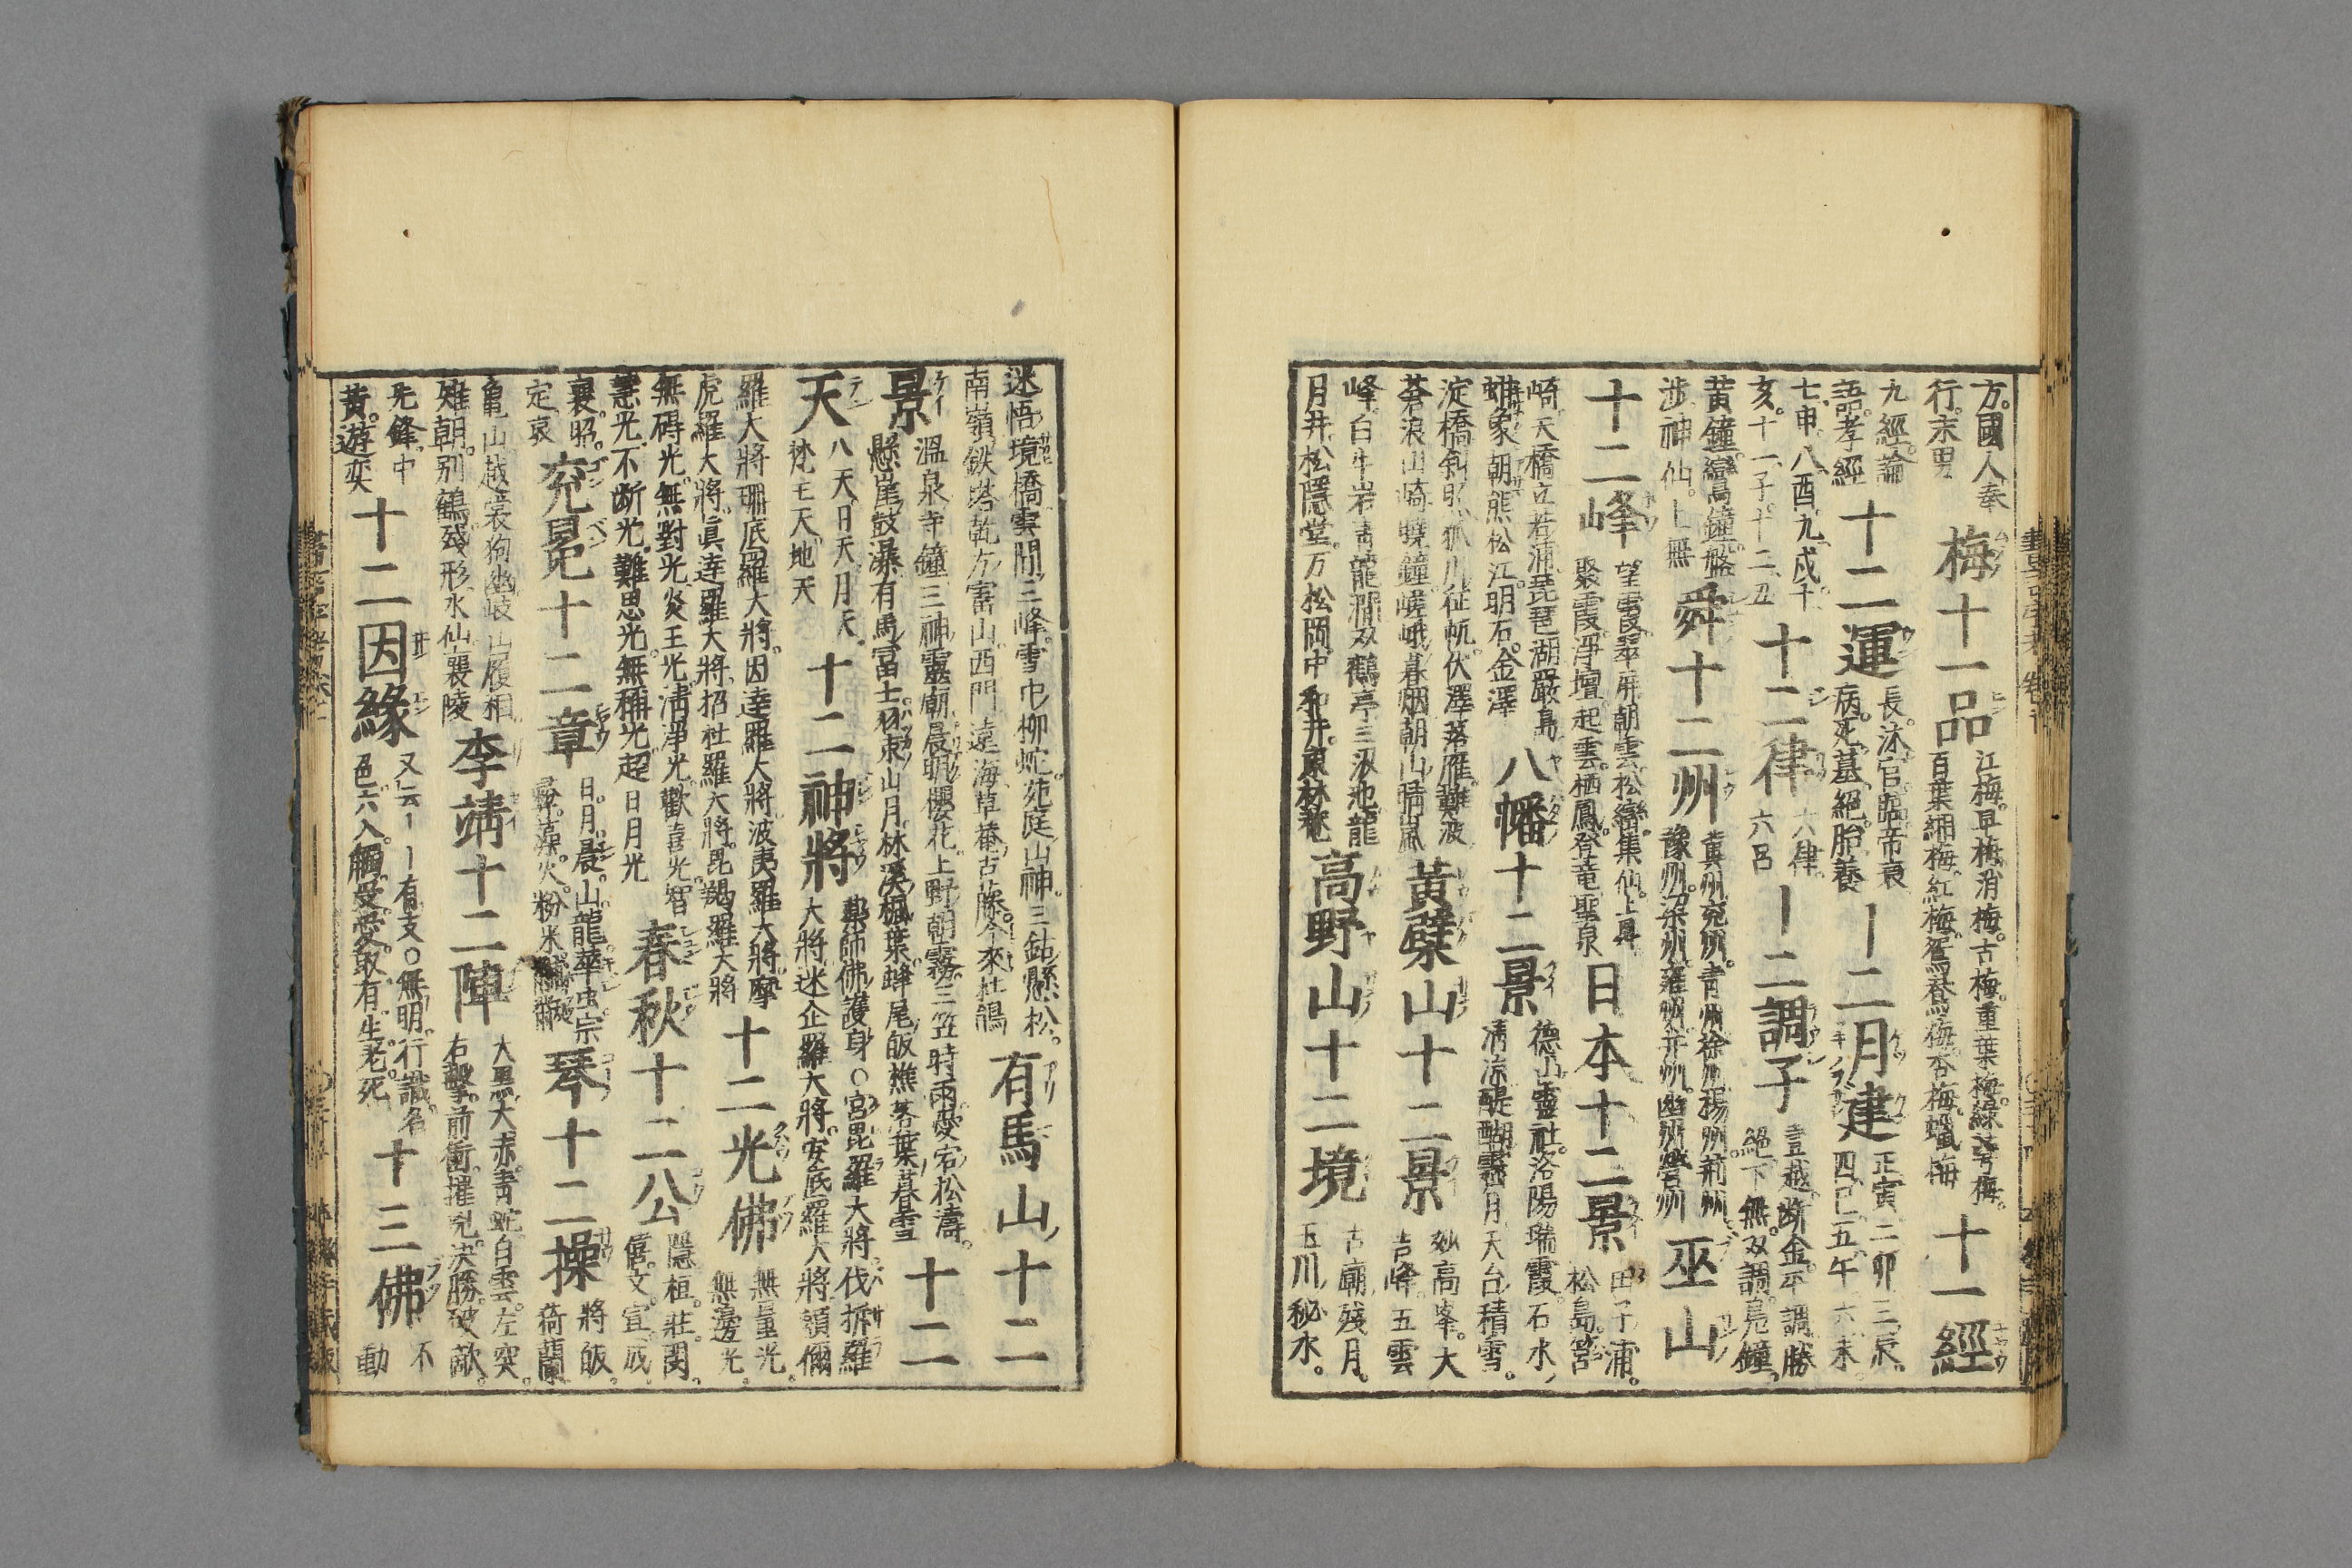 方。國人奉
行。末男
梅十一品
江梅。早梅。消梅。古梅。重葉梅。綠萼梅。
百葉緗梅。紅梅。鴛鴦梅。杏梅。蠟梅
十一經
九經。論
語。孝經
十二運
長。沐。官。臨。帝。衰
病。死。墓。絕。胎。養
一二月建
正寅。二卯。三辰。
四巳。五午。六未。
七申。八酉。九戌。十
亥。十一子。十二丑
十二律
六律。
六呂
一二調子
壹越。断金。平調。勝
絕。下無。双調。鳧鐘。
黃鐘。鸞鐘。盤
涉。神仙。上無
舜十二州
冀州。兗州。青州。徐州。揚州。荊州。
豫州。梁州。雍州。幷州。幽州。營州
巫山
十二峰
望霞。翠屏。朝雲。松巒。集仙。上昇。
聚霞。淨壇。起雲。栖鳳。登竜。聖泉
日本十二景
田子浦。
松島。筥
崎。天橋立。若浦。琵琶湖。嚴島。
蚶象。朝熊。松江。明石。金澤
八幡十二景
德山靈社。洛陽瑞霞。石水
淸涼。醍醐霽月。天台積雪。
淀橋斜照。狐川征帆。伏澤落雁。難波
蒼浪。山崎曉鐘。嵯峨暮烟。朝山晴嵐
黃檗山十二景
妙高峯。大
吉峰。五雲
峰。白牛岩。靑龍澗。双鶴亭。三汲池。龍
月井。松隱堂。万松岡。中和井。東林菴
高野山十二境
古廟残月。
玉川秘水。
迷悟境橋。雲間三峰。雪中柳。蛇苑。庭山神。三鈷懸松。
南嶺鉄塔。乾方富山。西門遠海。草菴古藤。今來杜鵑
有馬山十二
景
溫泉寺鐘。三神靈廟。晨明櫻花。上野朝霧。三笠時雨。愛宕松濤。
懸崖鼓瀑。有馬冨士。東山月。林溪楓葉。蜂尾皈樵。落葉暮雪
十二
天
八天。日天。月天。
梵王天。地天
十二神將
藥師佛護身〇宮毘羅大將。伐折羅
大將。迷企羅大將。安底羅大將。頞儞
羅大將。珊底羅大將。因達羅大將。波夷羅大將。摩
虎羅大將。眞達羅大將。招杜羅大將。毘羯羅大將
十二光佛
無量光。
無邊光。
無碍光。無對光。炎王光。淸淨光。歡喜光。智
慧光。不断光。難思光。無稱光。超日月光
春秋十二公
隱。桓。莊。閔。
僖。文。宣。成。
襄。昭。
定。哀
兗冕十二章
日。月。晨。山。龍。華虫。宗
彝。藻。火。粉米。黼。黻
琴十二操
將皈。
猗蘭。
龜山。越裳。狗幽。岐山。履相。
雉朝。別鶴。殘形。水仙。襄陵
李靖十二陣
大黑。大赤。靑蛇。白雲。左突。
右擊。前衝。摧兇。决勝。破敵。
先鋒。中
黃。遊奕
十二因緣
又云一一有支〇無明。行。識。名
色。六入。觸。受。愛。取。有。生。老死
十三佛
不
動